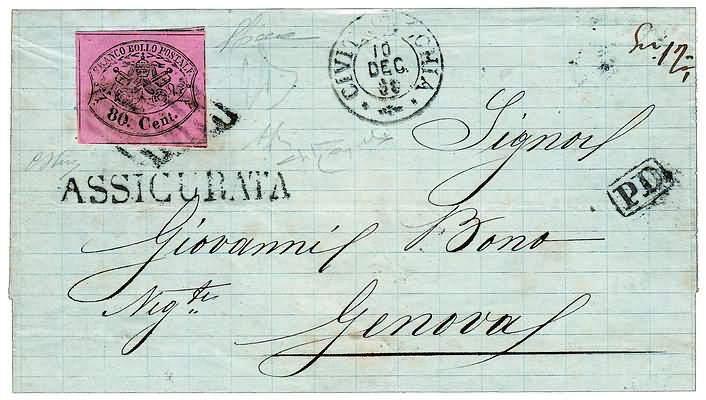 FRANCO BOLLO POSTALE
80. Cent.
CIVITAVECCHIA
10
DEC.
68
Signor
ASSICURATA
P.D.
Giovanni Bono
Neg.te
Genova